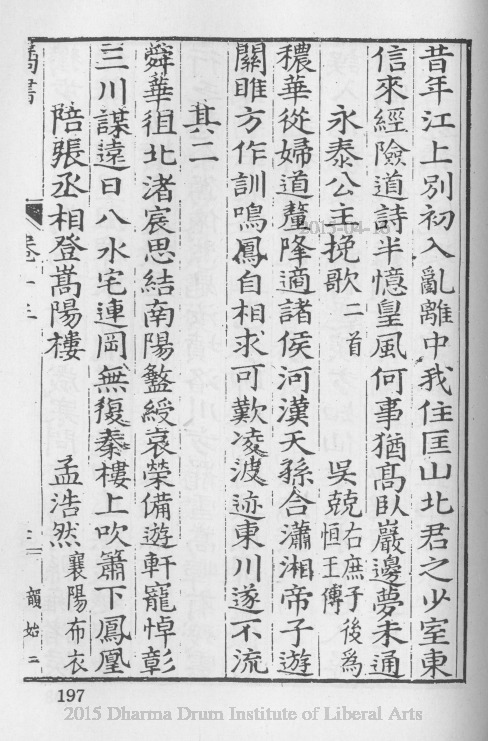 昔年江上別初入亂離中我住匡山北君之少室東
信來經險道詩半憶皇風何事猶高臥巖邊夢未通
永泰公主挽歌二首 吳兢右庶子後為恒王傅
穠華從婦道釐降適諸侯河漢天孫合瀟湘帝子遊
關雎方作訓鳴鳳自相求可歎凌波迹東川遂不流
其二
舜華徂北渚宸思結南陽盭綬哀榮備遊軒寵悼彰
三川謀遠日八水宅連岡無復秦樓上吹簫下鳳凰
陪張丞相登嵩陽樓 孟浩然襄陽布衣
卷十三
韻始二
197
2015 Dharma Drum Institute of Liberal Arts